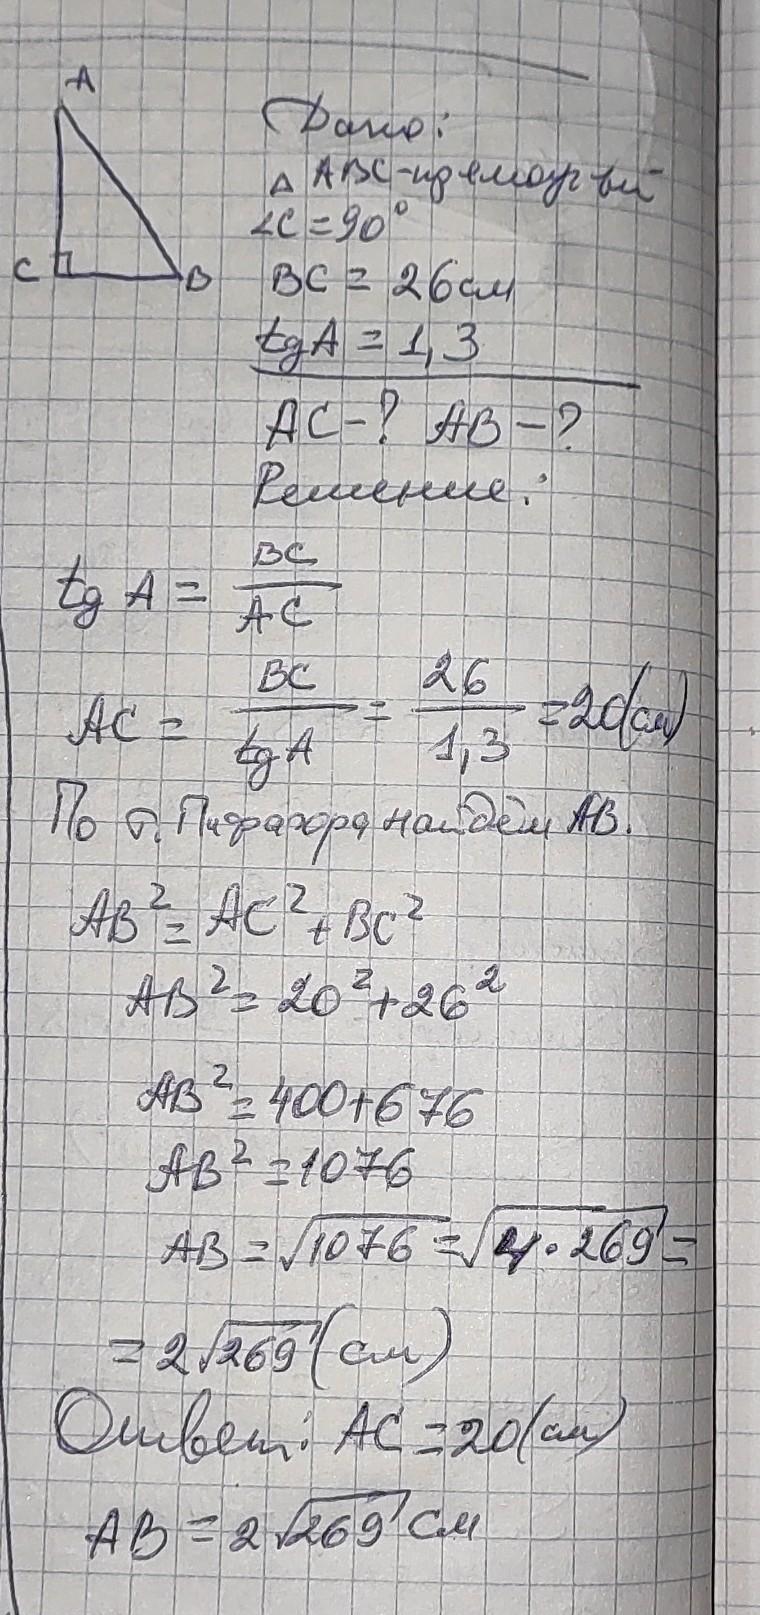 A
C
B
Дано:
△ ABC - прямоуг-ый
∠C = 90°
BC = 26 см
tg A = 1,3
AC - ? AB - ?
Решение:
tg A = BC / AC
AC = BC / tg A = 26 / 1,3 = 20 (см)
По т. Пифагора найдём AB.
AB² = AC² + BC²
AB² = 20² + 26²
AB² = 400 + 676
AB² = 1076
AB = √1076 = √4·269 =
= 2√269 (см)
Ответ: AC = 20 (см)
AB = 2√269 см